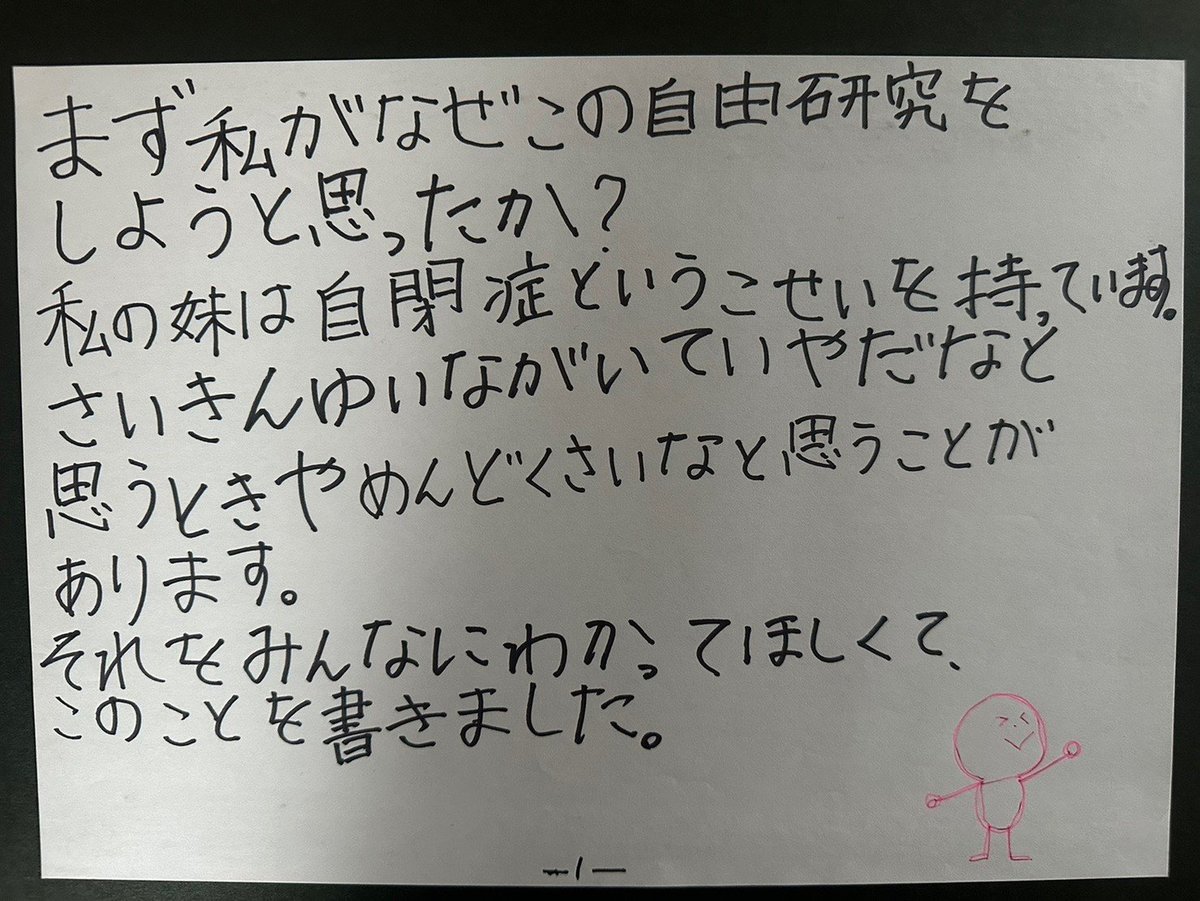 まず私がなぜこの自由研究を
しようと思ったか?
私の妹は自閉症というこせいを持っています。
さいきんゆいながいていやだなと
思うときやめんどくさいなと思うことが
あります。
それをみんなにわかってほしくて、
このことを書きました。
-1-